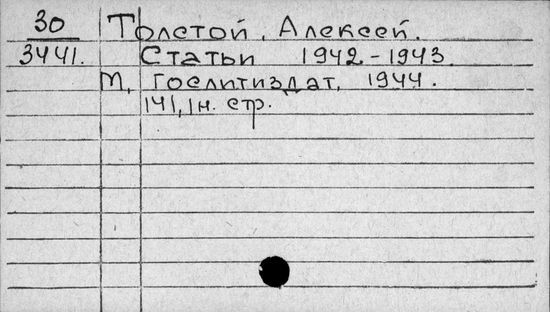 30 Толстой, Алексей.
3441. Статьи 1942-1943.
М, Гослитиздат, 1944.
141, 1н. стр.